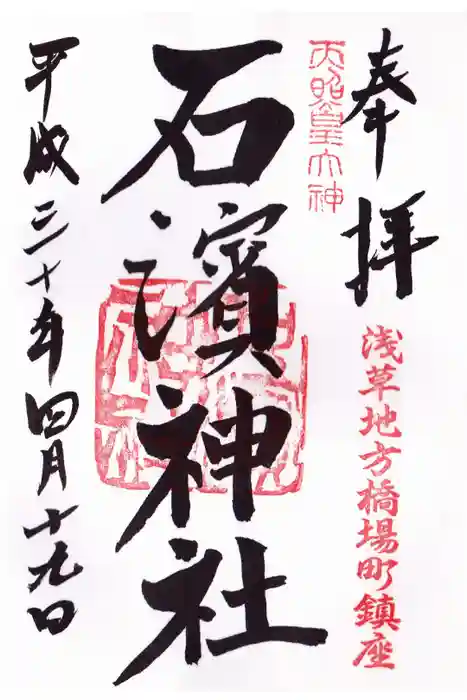 奉拝
浅草地方橋場町鎮座
天照皇大神
石濱神社
平成三十年四月十九日